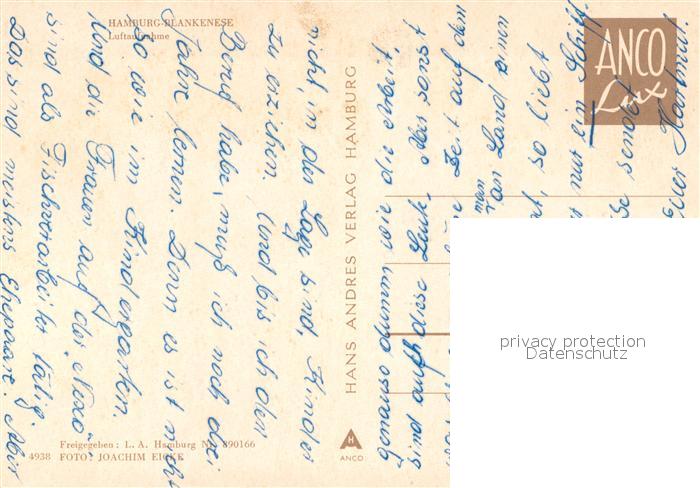 HAMBURG-BLANKENESE
Luftaufnahme
nicht in der Lage sind, Kinder
zu erziehen. Und bis ich den
Beruf habe, muß ich noch drei
Jahre lernen. Denn es ist nicht
so wie im Kindergarten.
Und die Frauen auf der
sind als Fischverarbeiter tätig.
Das sind meistens Ehepaare. Aber
genauso dumm wie die Arbeit,
sind auch diese Leute. Aber sonst
Zeit auf dem
man
an Land einen
so liebt
nur ein Schiff
sendet
Hartmut
HANS ANDRES VERLAG HAMBURG
ANCO
Lux
privacy protection
Datenschutz
Freigegeben: L. A. Hamburg Nr. 890166
4938 FOTO: JOACHIM EICKE
H
ANCO